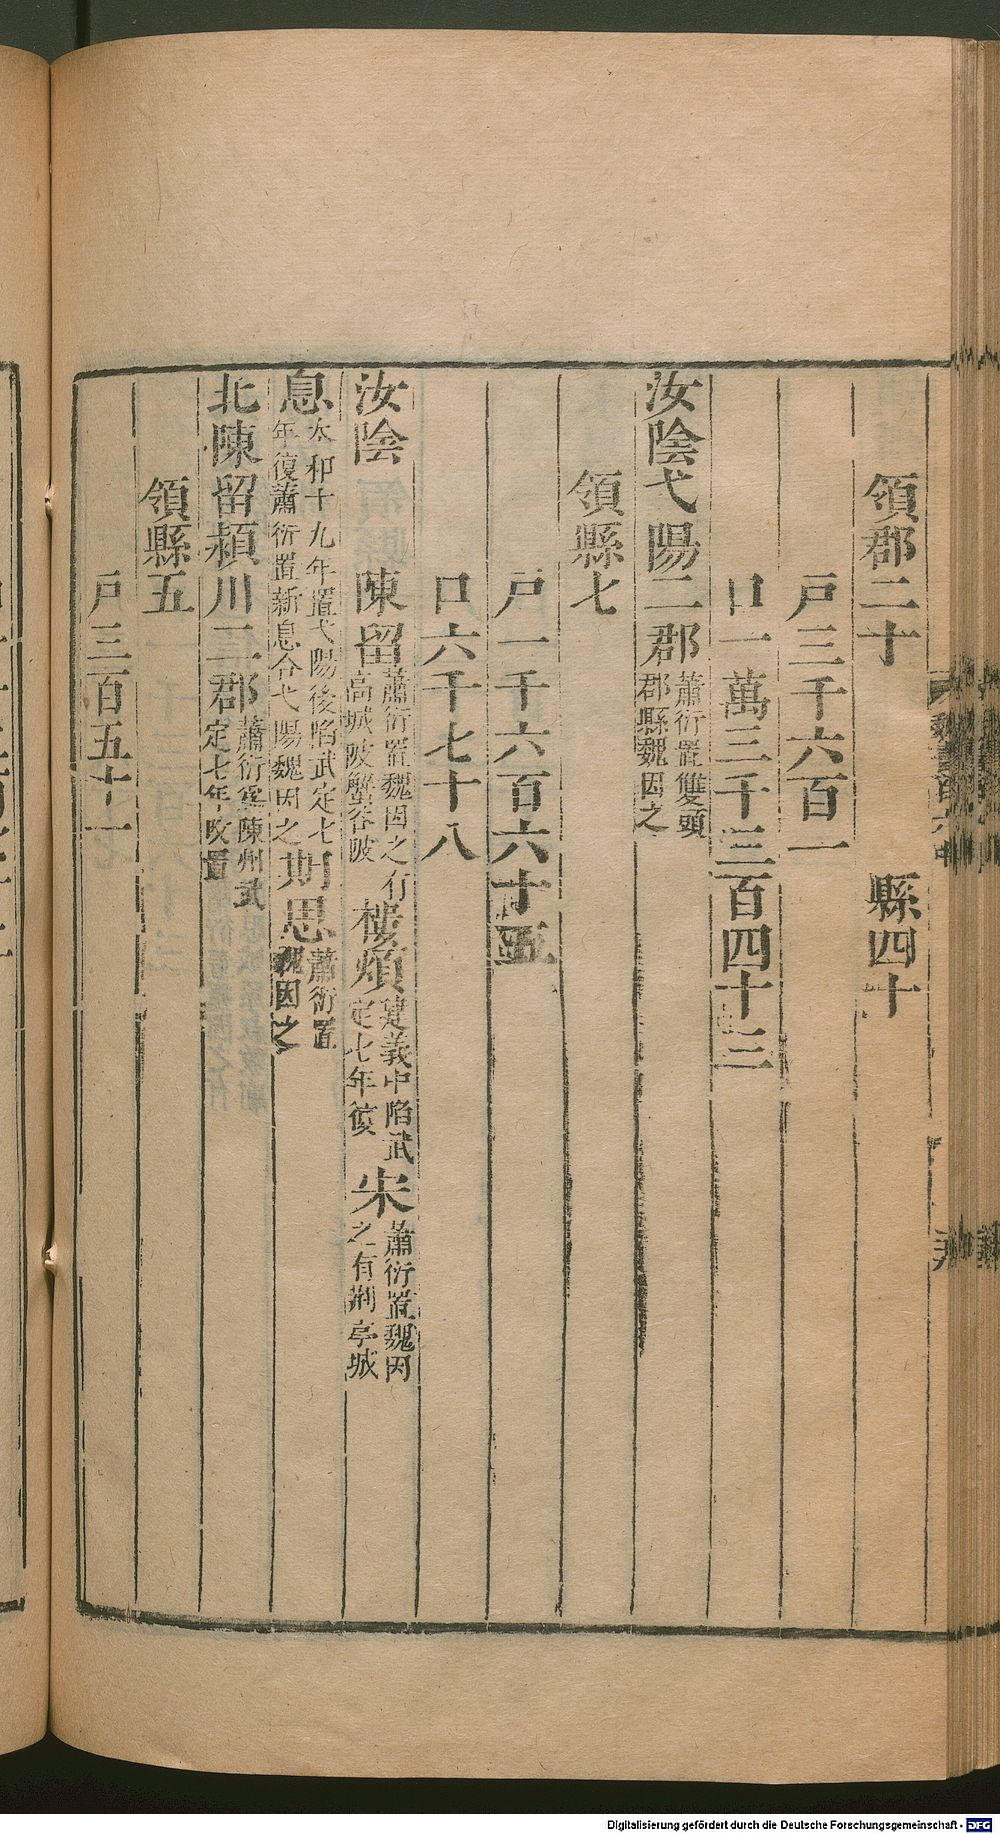 領郡二十　縣四十
戶三千六百一
口一萬三千三百四十三
汝陰弋陽二郡蕭衍置雙頭郡縣魏因之
領縣七
戶一千六百六十五
口六千七十八
汝陰　陳留蕭衍置魏因之有高城陂蟹谷陂樓煩建義中陷武定七年復宋蕭衍置魏因之有荆亭城
息太和十九年置弋陽後陷武定七年復蕭衍置新息合弋陽魏因之期思蕭衍置魏因之
北陳留潁川二郡蕭衍爲陳州武定七年改置
領縣五
戶三百五十一
Digitalisierung gefördert durch die Deutsche Forschungsgemeinschaft - DFG